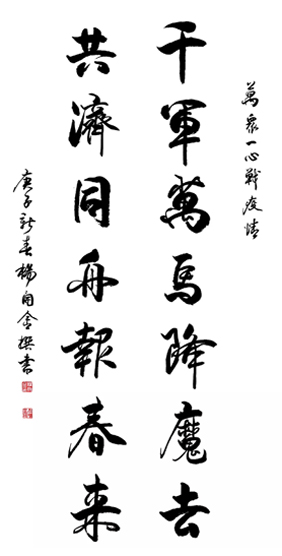 萬眾一心戰疫情
千軍萬馬降魔去
共濟同舟報春來
庚子新春楊自會撰書